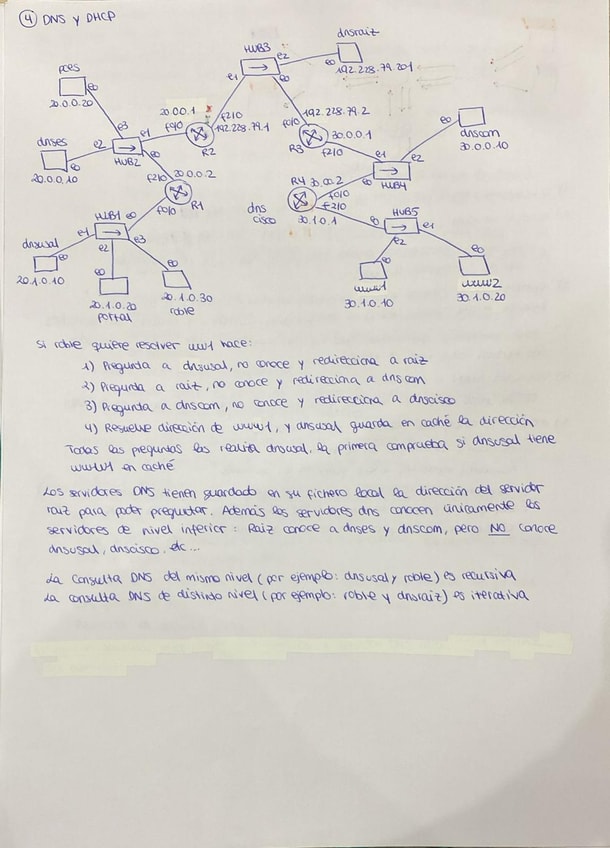 ④ DNS y DHCP
HUB3
dnsraiz
e2
e0
192.228.79.201
e1
e0
pces
e0
20.0.0.20
20.0.0.1
f0/0
f2/0
192.228.79.1
R2
192.228.79.2
f0/0
30.0.0.1
R3
f2/0
e0
dnscom
30.0.0.10
dnses
e0
20.0.0.10
e3
e2
e1
HUB2
e0
f2/0
20.0.0.2
f0/0
R1
e1
e2
HUB4
e0
R4 30.0.0.2
f0/0
f2/0
30.1.0.1
dns
cisco
HUB5
e0
e1
e2
HUB1
e0
e1
e2
e3
dnsusal
e0
20.1.0.10
e0
20.1.0.20
portal
e0
20.1.0.30
roble
e0
www1
30.1.0.10
e0
www2
30.1.0.20
Si roble quiere resolver ww1 hace:
1) Pregunta a dnsusal, no conoce y redirecciona a raiz
2) Pregunta a raiz, no conoce y redirecciona a dnscom
3) Pregunta a dnscom, no conoce y redirecciona a dnscisco
4) Resuelve dirección de www1, y dnsusal guarda en caché la dirección
Todas las preguntas las realiza dnsusal, la primera comprueba si dnsusal tiene
www1 en caché
Los servidores DNS tienen guardado en su fichero local la dirección del servidor
raiz para poder preguntar. Además los servidores dns conocen únicamente los
servidores de nivel inferior: Raiz conoce a dnses y dnscom, pero NO conoce
dnsusal, dnscisco, etc...
La consulta DNS del mismo nivel (por ejemplo: dnsusal y roble) es recursiva
La consulta DNS de distinto nivel (por ejemplo: roble y dnsraiz) es iterativa